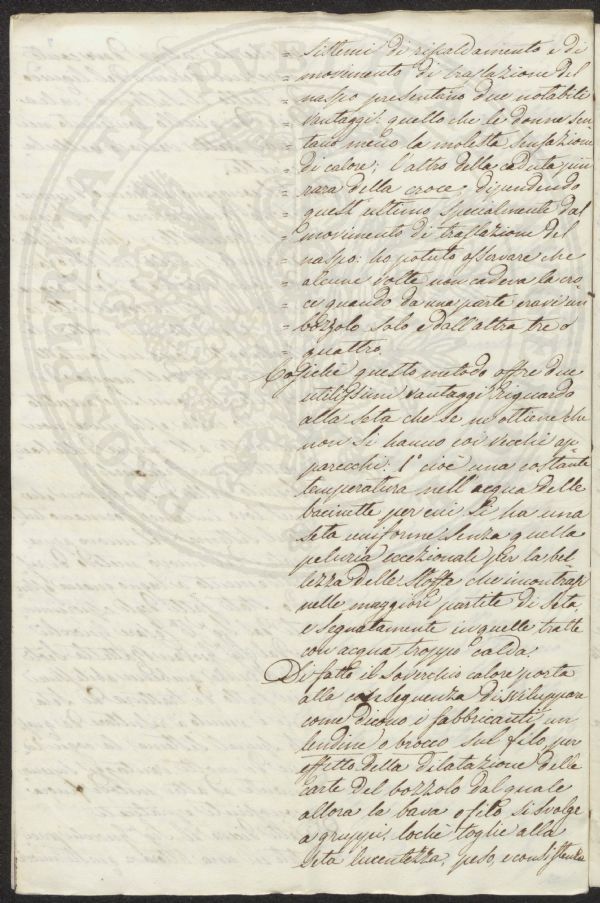 = sistemi di riscaldamento e di
= movimento di traslazione del
= naspo presentano due notabili
= vantaggi: quello che le donne sen-
= tano meno la molesta sensazione
= di calore; l'altro della caduta più
= rara della croce, dipendendo
= quest'ultimo specialmente dal
= movimento di traslazione del
= naspo: ho potuto osservare che
= alcune volte non cadeva la cro-
= ce quando da una parte eravi un
= bozzolo solo e dall'altra tre o
= quattro.
Cosichè questo metodo offre due
utilissimi vantaggi riguardo
alla seta che se ne ottiene che
non si hanno coi vecchi ap-
parecchi: 1° cioè una costante
temperatura nell'acqua delle
bacinette per cui si ha una
seta uniforme senza quella
peluria eccezionale per la bel-
lezza delle stoffe che incontrasi
nelle maggiori partite di seta,
e segnatamente in quelle tratte
con acqua troppo calda.
Di fatto il soverchio calore porta
alla conseguenza di sviluppare
come dicono i fabbricanti un
lendine o brocco sul filo per
effetto della dilatazione delle
carte del bozzolo dal quale
allora la bava o filo si svolge
a gruppi: locchè toglie alla
seta lucentezza, peso, e consistenza
PROSPERITATI PVB